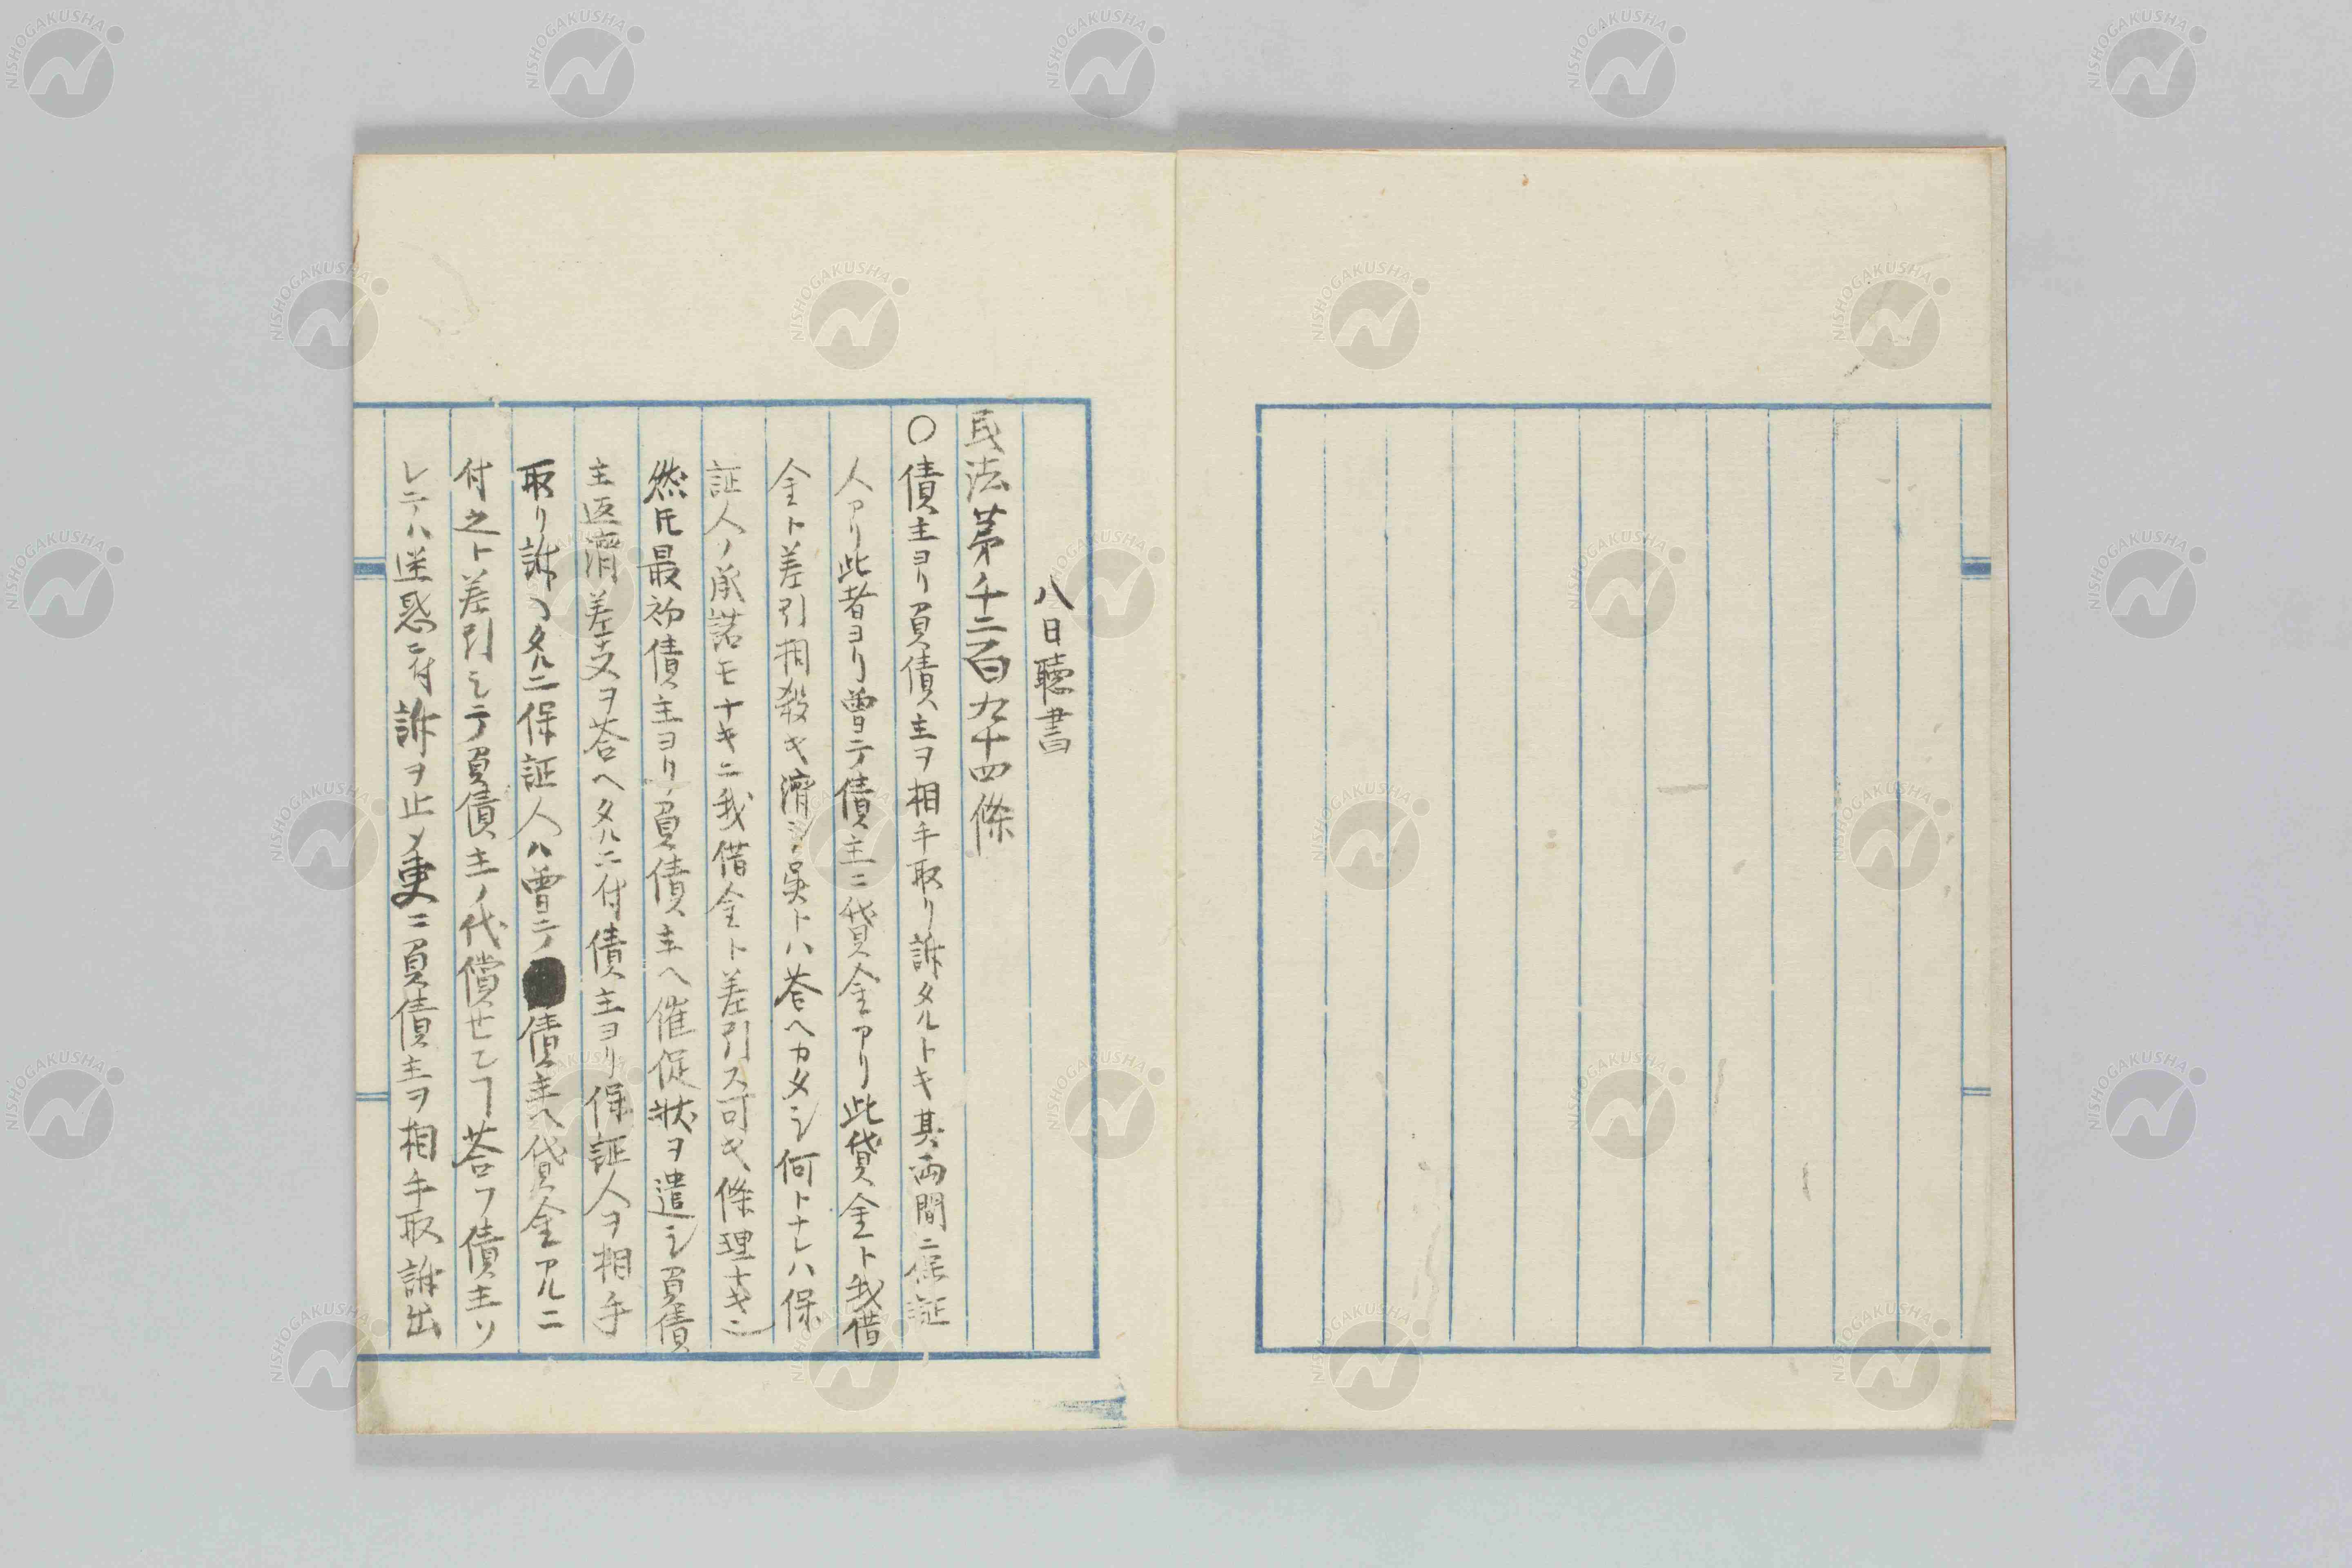 八日聴書
民法第千二百九十四條
〇債主ヨリ負債主ヲ相手取リ訴タルトキ其両間ニ保証
人アリ此者ヨリ曽テ債主ニ貸金アリ此貸金ト我借
金ト差引相殺キ濟シ呉トハ荅ヘカタシ何トナレハ保
証人ノ承諾モナキニ我借金ト差引ス可キ條理ナキニ
然𪜈最初債主ヨリ負債主ヘ催促状ヲ遣シ負債
主返濟差支ヲ荅ヘタルニ付債主ヨリ保証人ヲ相手
取リ訴ヘタルニ保証人ハ曽テ債主ヘ貸金アルニ
付之ト差引シテ負債主ノ代償セヒヿ荅フ債主ソ
レテハ迷惑ニ付訴ヲ止メ更ニ負債主ヲ相手取訴出
NISHOGAKUSHA